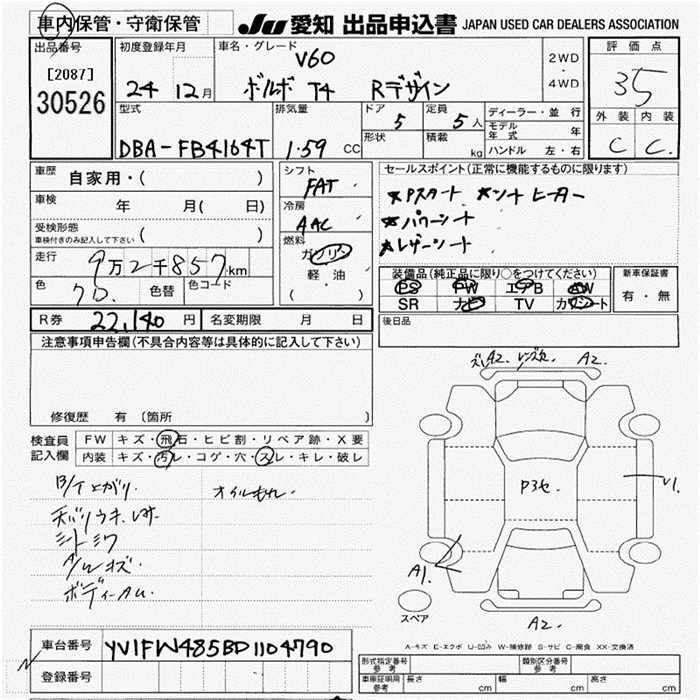 車内保管・守衛保管
JU 愛知 出品申込書 JAPAN USED CAR DEALERS ASSOCIATION
出品番号
[2087]
30526
初度登録年月
24 12月
車名・グレード
V60
ボルボ T4 Rデザイン
2WD
・
4WD
評価点
3.5
外装 内装
C C
型式
DBA-FB4164T
排気量
1.59 CC
ドア
5
形状
定員
5人
積載
kg
ディーラー・並行
モデル年式 年
ハンドル 左・右
車歴
自家用・( )
車検
年 月( 日)
受検形態
車検付きのみ記入して下さい ( )
走行
9万2千857km
色
色替
色コード
シフト
FAT
冷房
AAC
燃料
ガソリン
軽・油
( ・ )
セールスポイント(正常に機能するものに限ります)
★Pスタート ★シートヒーター
★パワーシート
★レザーシート
装備品(純正品に限り○をつけてください)
PS PW エアB AW
SR ナビ TV カワシート
新車保証書
有・無
後日品
R券 22,140 円
名変期限 月 日
注意事項申告欄(不具合内容等は具体的に記入して下さい)
修復歴 有 〔箇所
検査員
記入欄
FW キズ・飛石・ヒビ割・リペア跡・X要
内装 キズ・汚レ・コゲ・穴・スレ・キレ・破レ
オイルもれ.
シートシワ
A/Wキズ
ボディーAU.
A2. A2.
P3セ.
A1.
A2.
スペア
A-キズ E-エクボ U-凹み W-補修跡 S-サビ C-腐食 XX-交換済
車台番号
YV1FW485BD1104790
登録番号
型式指定番号
参考
類別区分番号
参考
車庫証明用
参考
長さ cm 幅 cm 高さ cm